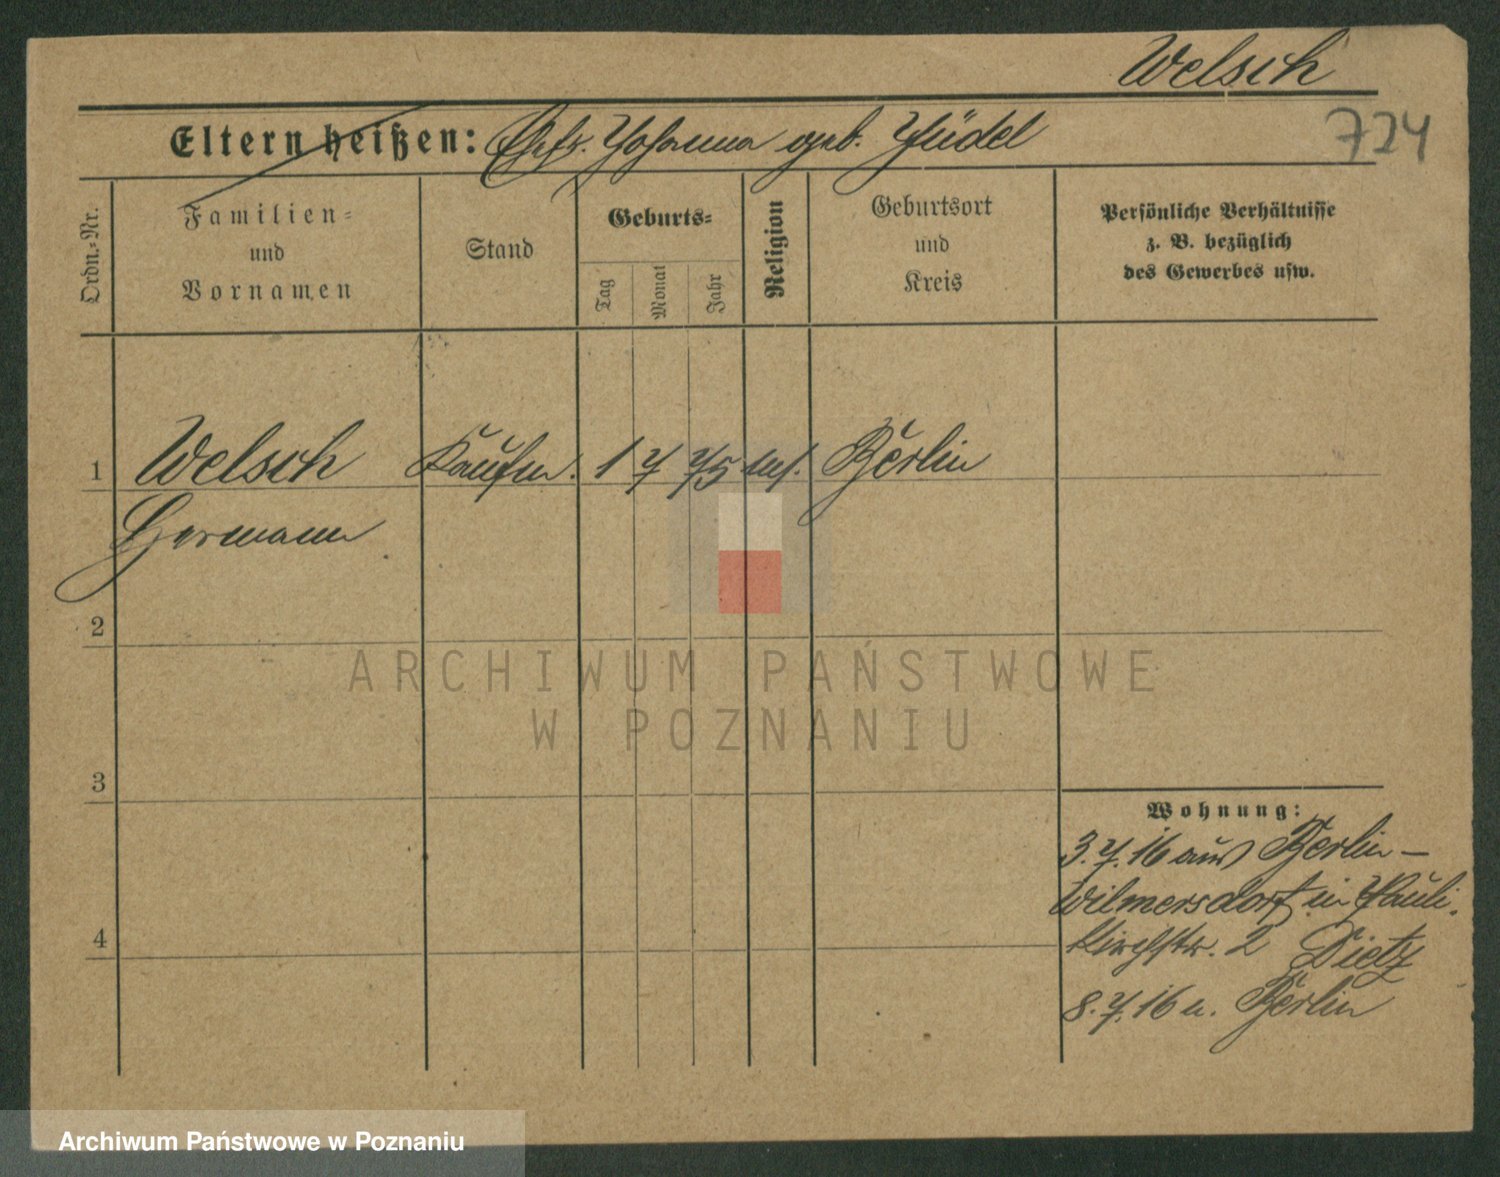 Welsch
724
Eltern heißen: Ehefr. Johanna geb. Jüdel
Ordn.-Nr.
Familien-
und
Vornamen
Stand
Geburts-
Tag
Monat
Jahr
Religion
Geburtsort
und
Kreis
Persönliche Verhältnisse
z. B. bezüglich
des Gewerbes usw.
1 Welsch Kaufm. 1 7 75 Berlin
Hermann
2
3
4
Wohnung:
3.7.16 aus Berlin-
Wilmersdorf in Pauli-
kirchstr. 2 Dietz
8.7.16 n. Berlin
ARCHIWUM PAŃSTWOWE
W POZNANIU
Archiwum Państwowe w Poznaniu